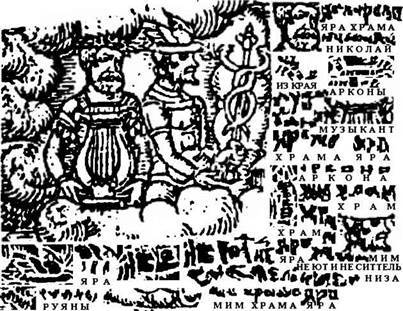 ЯРА ХРАМА
НИКОЛАЙ
ИЗ КРАЯ АРКОНЫ
МУЗЫКАНТ
ХРАМА ЯРА
АРКОНА
ХРАМ
ХРАМ
ЯРА МИМ
НЕ ЮТ И НЕ СИТТЕЛЬ
ЯРА НИЗА
РУЯНЫ МИМ ХРАМА ЯРА